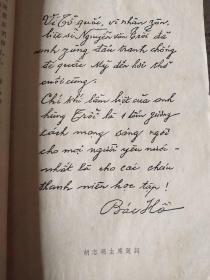 Vì Tổ quốc, vì nhân zân,
liệt sĩ Nguyễn văn Trỗi đã
anh zũng đấu tranh chống
đế quốc Mỹ đến hơi thở
cuối cùng.
Chí khí lẫm liệt của anh
hùng Trỗi là 1 tấm gương
cách mạng sáng ngời
cho mọi người yêu nước -
nhất là cho các cháu
thanh niên học tập!
Bác Hồ
胡志明主席题词